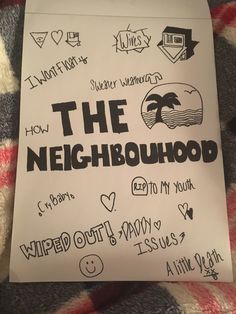 Wires
Sweater Weather
HOW
THE
NEIGHBOUHOOD
Cry Baby
R.I.P
TO My YOUTH
WIPED OUT!
DADDY
ISSUES
A little Death